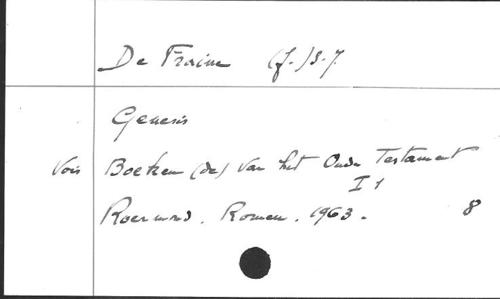 De Fraine (J.) S.J.
Genesis
Vois Boeken (de) van het Oude Testament
I 1
Roermond. Romen. 1963. 8